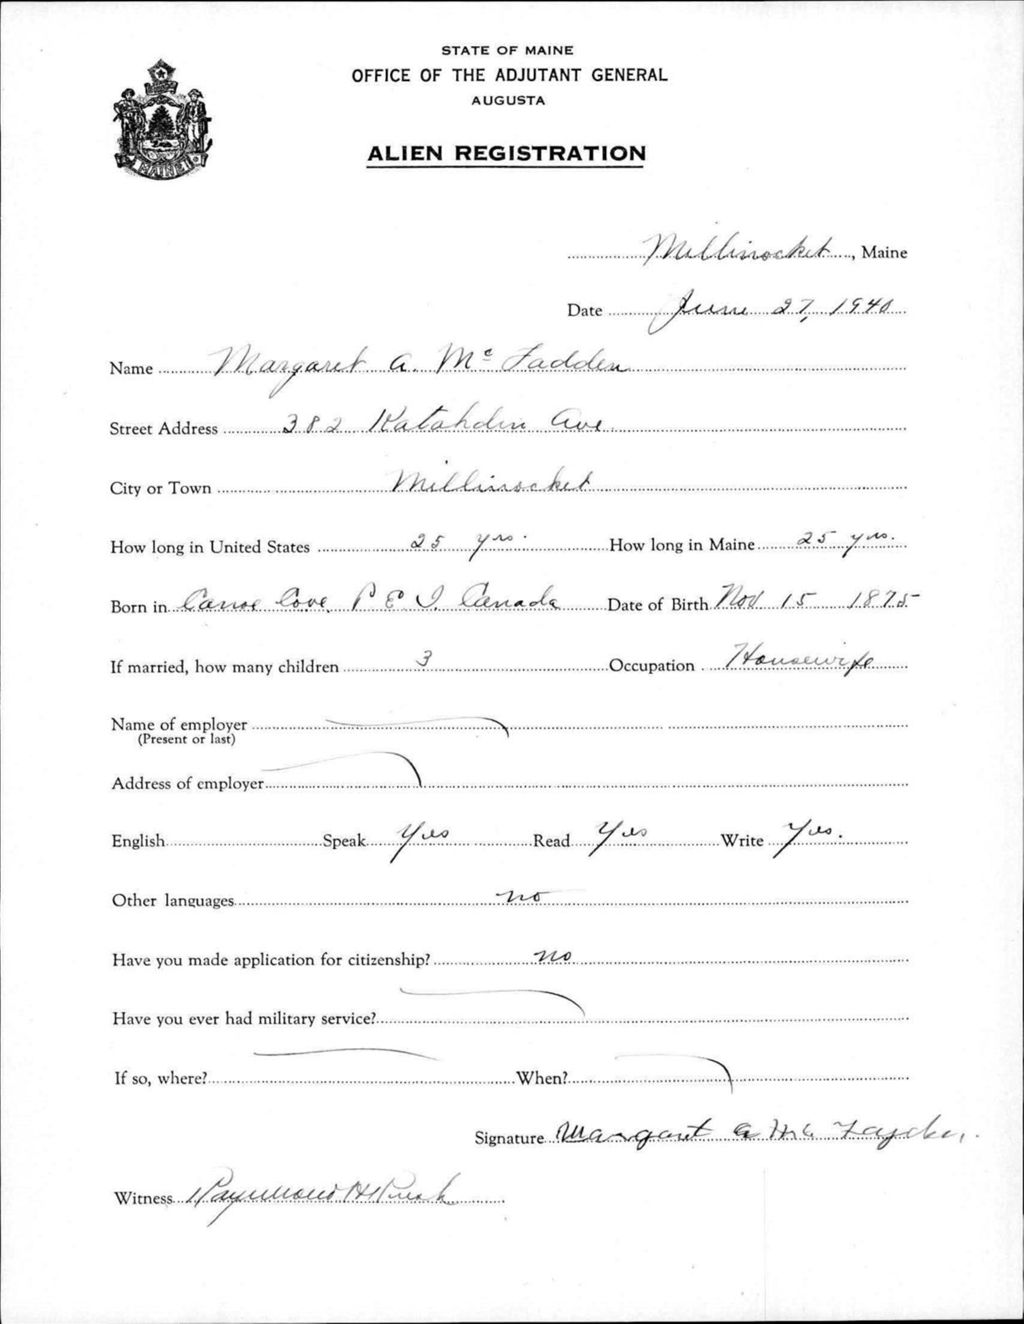 STATE OF MAINE
OFFICE OF THE ADJUTANT GENERAL
AUGUSTA
MAINE
ALIEN REGISTRATION
Millinocket, Maine
Date June 27, 1940
Name Margaret A. Mc Fadden
Street Address 382 Katahdin Ave
City or Town Millinocket
How long in United States 25 yrs. How long in Maine 25 yrs.
Born in Canoe Cove P E I. Canada Date of Birth Nov 15 1875
If married, how many children 3 Occupation Housewife
Name of employer
(Present or last)
Address of employer
English Speak Yes Read Yes Write Yes.
Other languages no
Have you made application for citizenship? no
Have you ever had military service?
If so, where? When?
Signature Margaret A Mc
Witness Raymond H